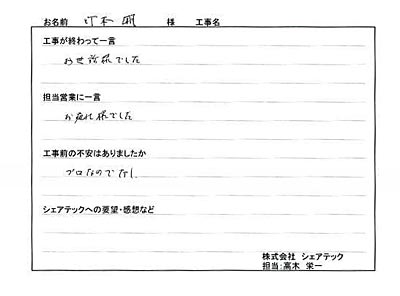 お名前 様 工事名
工事が終わって一言
お世話様でした
担当営業に一言
お疲れ様でした
工事前の不安はありましたか
プロなのでなし
シェアテックへの要望・感想など
株式会社 シェアテック
担当:高木 栄一